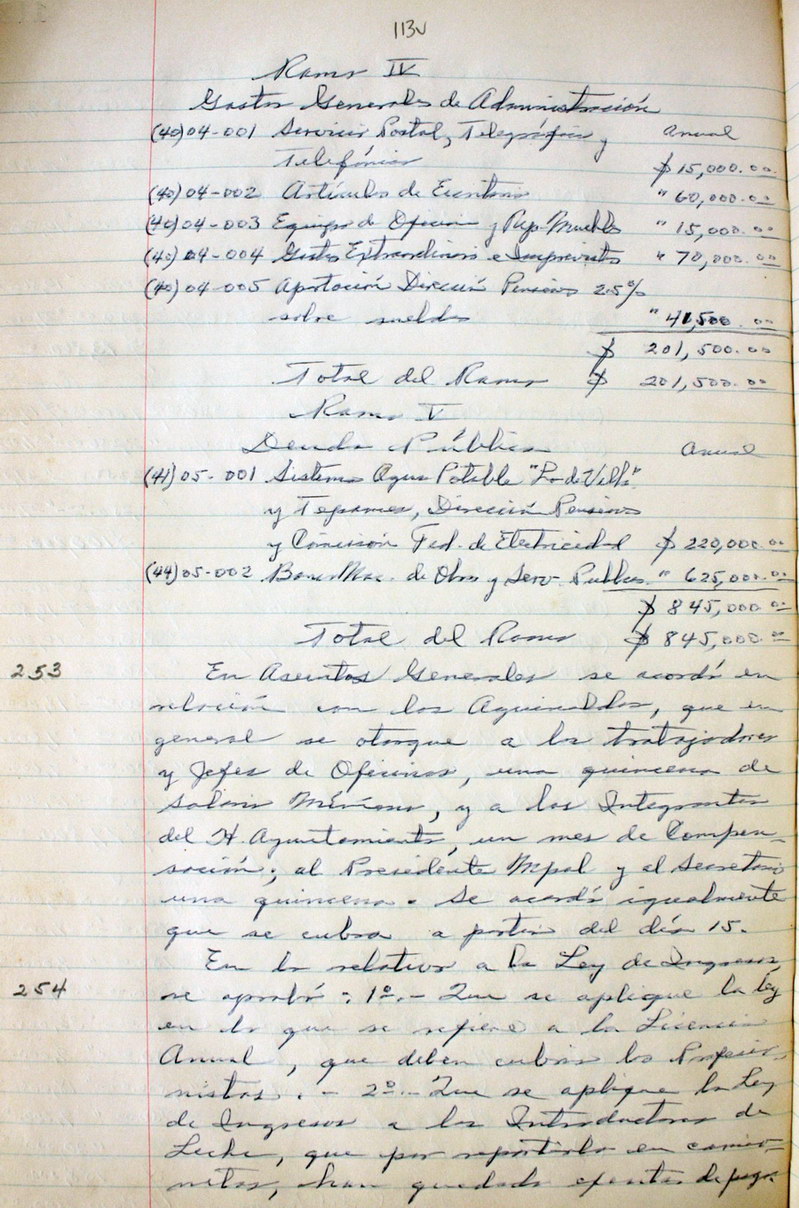 113v
Ramo IV
Gastos Generales de Administración
(40) 04-001 Servicio Postal, Telegráfico y Anual
Telefónico $ 15,000.00
(40) 04-002 Artículos de Escritorio " 60,000.00
(40) 04-003 Equipo de Oficina y Rep. Muebles " 15,000.00
(40) 04-004 Gastos Extraordinarios e Imprevistos " 70,000.00
(40) 04-005 Aportación Dirección Pensiones 2.5%
sobre sueldos " 41,500.00
$ 201,500.00
Total del Ramo $ 201,500.00
Ramo V
Deuda Pública Anual
(41) 05-001 Sistema Agua Potable "Lo de Villa"
y Tepames, Dirección Pensiones
y Comisión Fed. de Electricidad $ 220,000.00
(44) 05-002 Banco Nac. de Obras y Serv. Públicos " 625,000.00
$ 845,000.00
Total del Ramo $ 845,000.00
253 En Asuntos Generales se acordó en
relación con los Aguinaldos, que en
general se otorgue a los trabajadores
y Jefes de Oficinas, una quincena de
Salario Mínimo, y a los Integrantes
del H. Ayuntamiento, un mes de Compen-
sación; al Presidente Mpal y al Secretario
una quincena. Se acordó igualmente
que se cubra a partir del día 15.
En lo relativo a la Ley de Ingresos,
254 se aprobó: 1º.- Que se aplique la ley
en lo que se refiere a la Licencia
Anual, que deben cubrir los Profesio-
nistas. - 2º.- Que se aplique la Ley
de Ingresos a los Introductores de
Leche, que por repartirla en camio-
netas, han quedado exentos de pago.